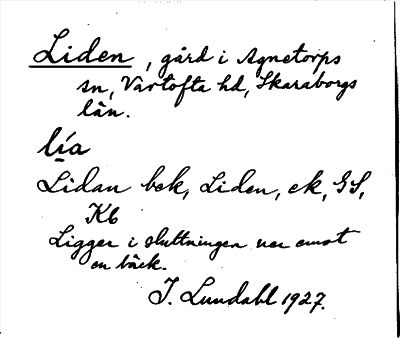 Liden, gård i Agnetorps
sn, Vartofta hd, Skaraborgs
län.
lia
Lidan bek, Liden, ek, GS,
Kb
Ligger i sluttningen ner emot
en bäck.
I. Lundahl 1927.